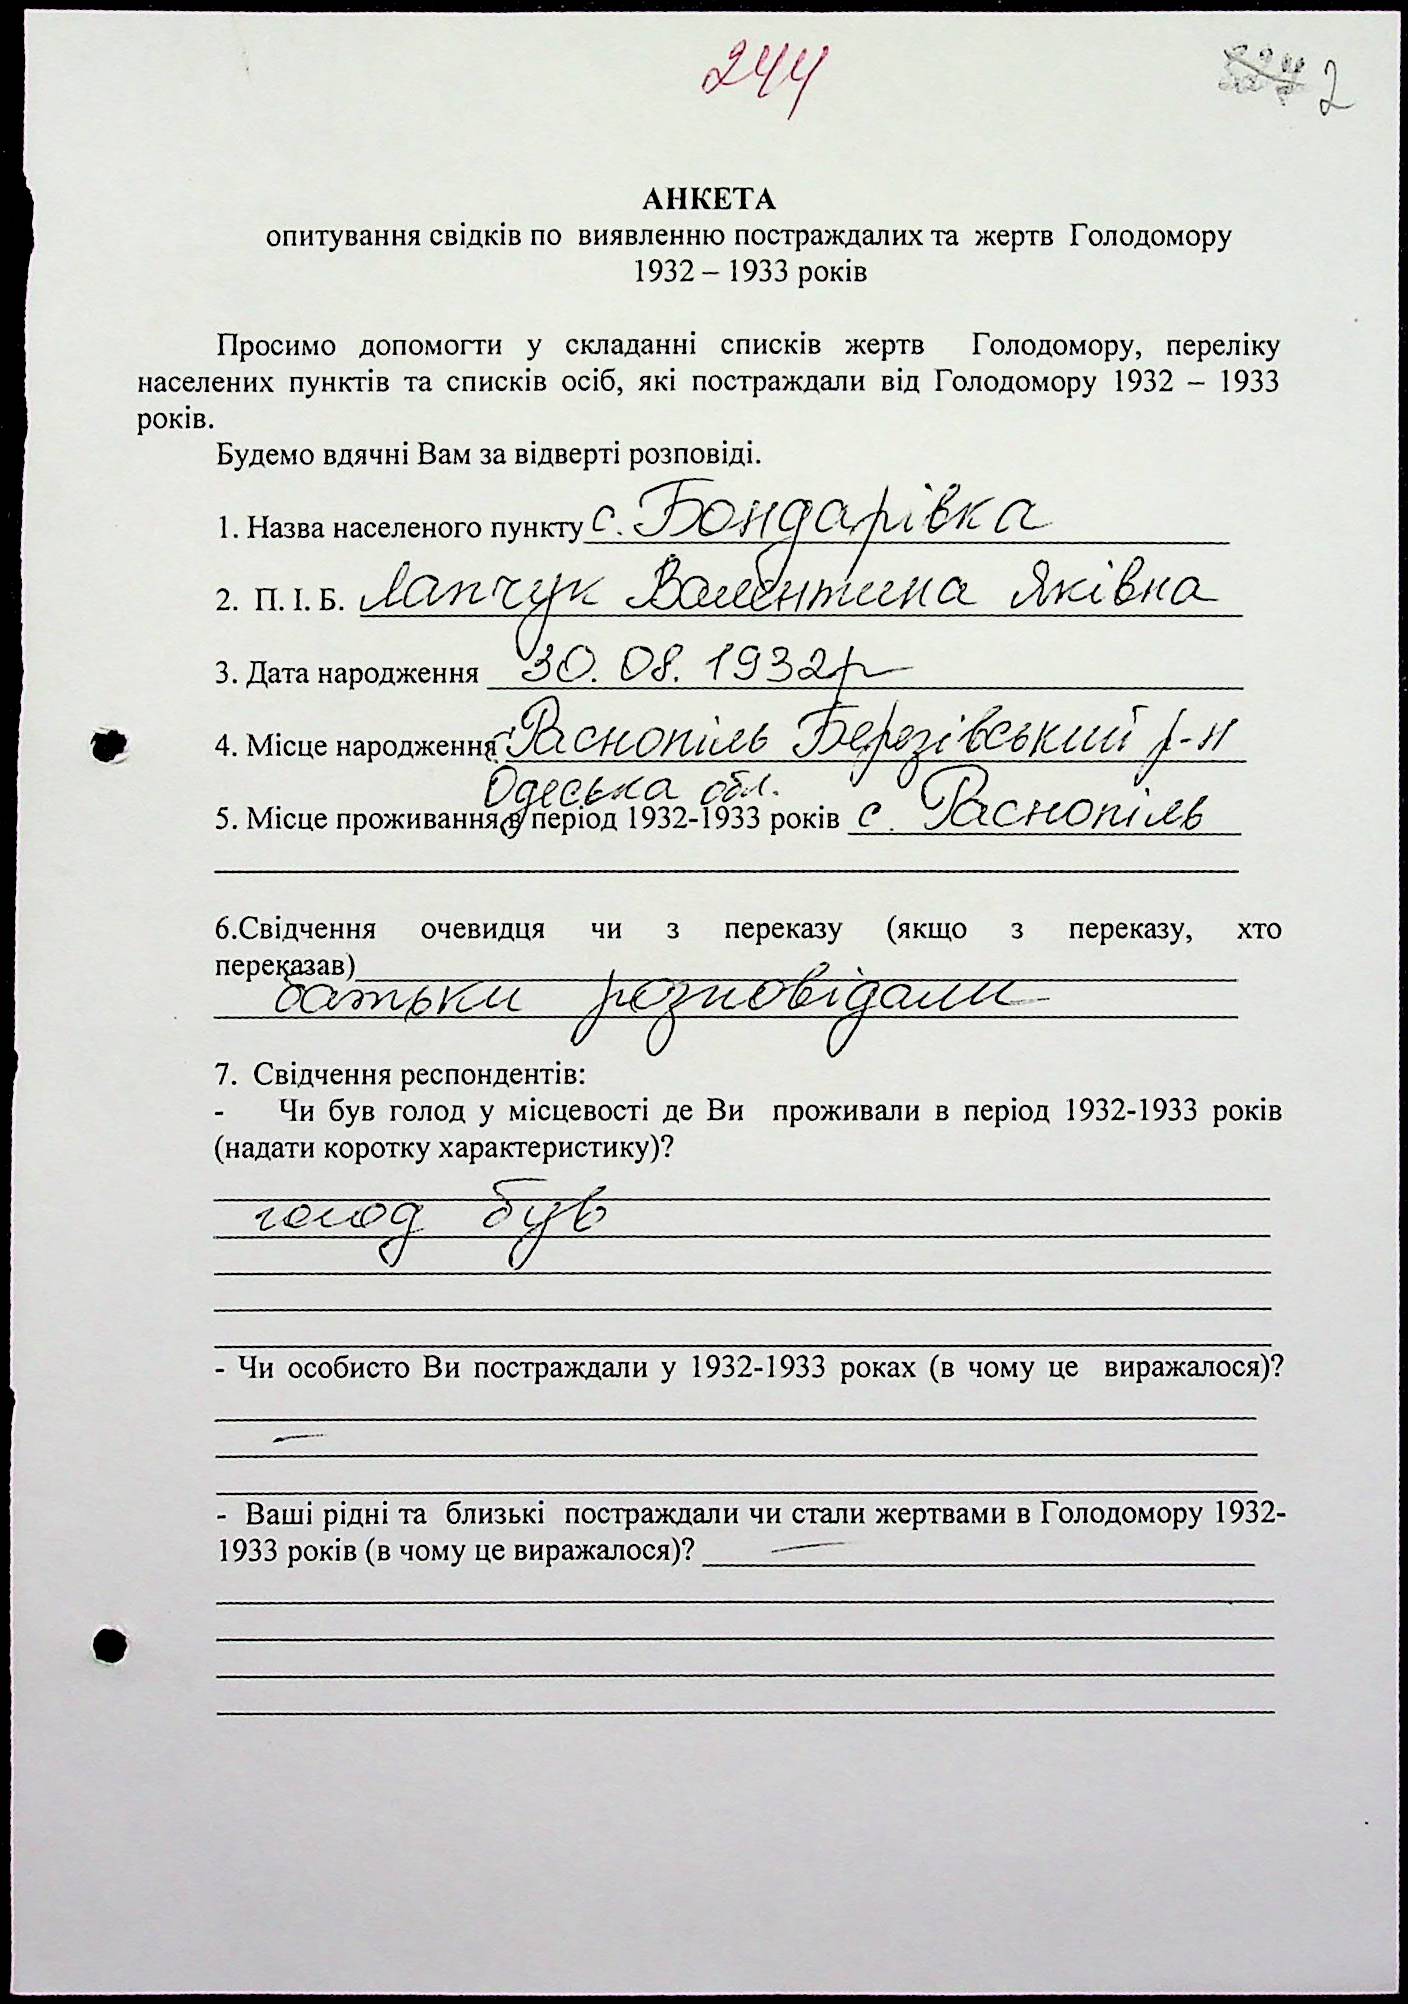 244
2
АНКЕТА
опитування свідків по виявленню постраждалих та жертв Голодомору
1932 – 1933 років
Просимо допомогти у складанні списків жертв Голодомору, переліку
населених пунктів та списків осіб, які постраждали від Голодомору 1932 – 1933
років.
Будемо вдячні Вам за відверті розповіді.
1. Назва населеного пункту с. Бондарівка
2. П. І. Б. Лапчук Валентина Яківна
3. Дата народження 30. 08. 1932р
4. Місце народження с. Раснопіль Березівський р-н
Одеська обл.
5. Місце проживання в період 1932-1933 років с. Раснопіль
6.Свідчення очевидця чи з переказу (якщо з переказу, хто
переказав)
батьки розповідали
7. Свідчення респондентів:
- Чи був голод у місцевості де Ви проживали в період 1932-1933 років
(надати коротку характеристику)?
голод був
- Чи особисто Ви постраждали у 1932-1933 роках (в чому це виражалося)?
–
- Ваші рідні та близькі постраждали чи стали жертвами в Голодомору 1932-
1933 років (в чому це виражалося)? –